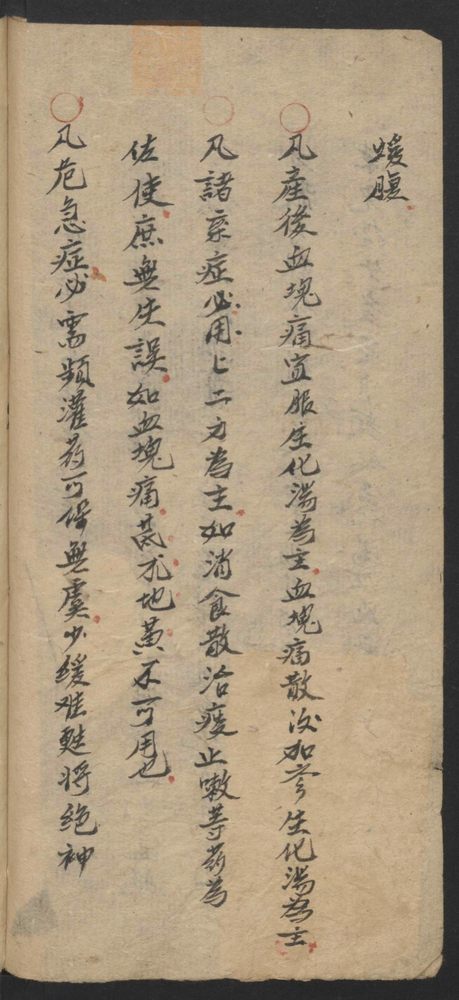 煖腹
凡產後血塊痛宜服生化湯為主血塊痛散後加參生化湯為主
凡諸雜症必用上二方為主如消食散治痰止嗽等药為
佐使庶無失誤如血塊痛芪朮地黃不可用也
凡危急症必需頻灌药可保無虞少缓难甦将绝神